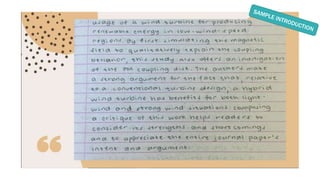 SAMPLE INTRODUCTION
usage of a wind turbine for producing
renewable energy in low-wind-speed
regions. By first simulating the magnetic
field to qualitatively explain the coupling
behavior, this study also offers an
of the PM coupling disk. The authors make
a strong argument for the fact that, relative
to a conventional turbine design, a hybrid
wind turbine has benefits for both light
wind and strong wind situations. Composing
a critique of this work helps readers to
consider its strengths and shortcomings
and to appreciate the entire journal paper's
intent and argument.